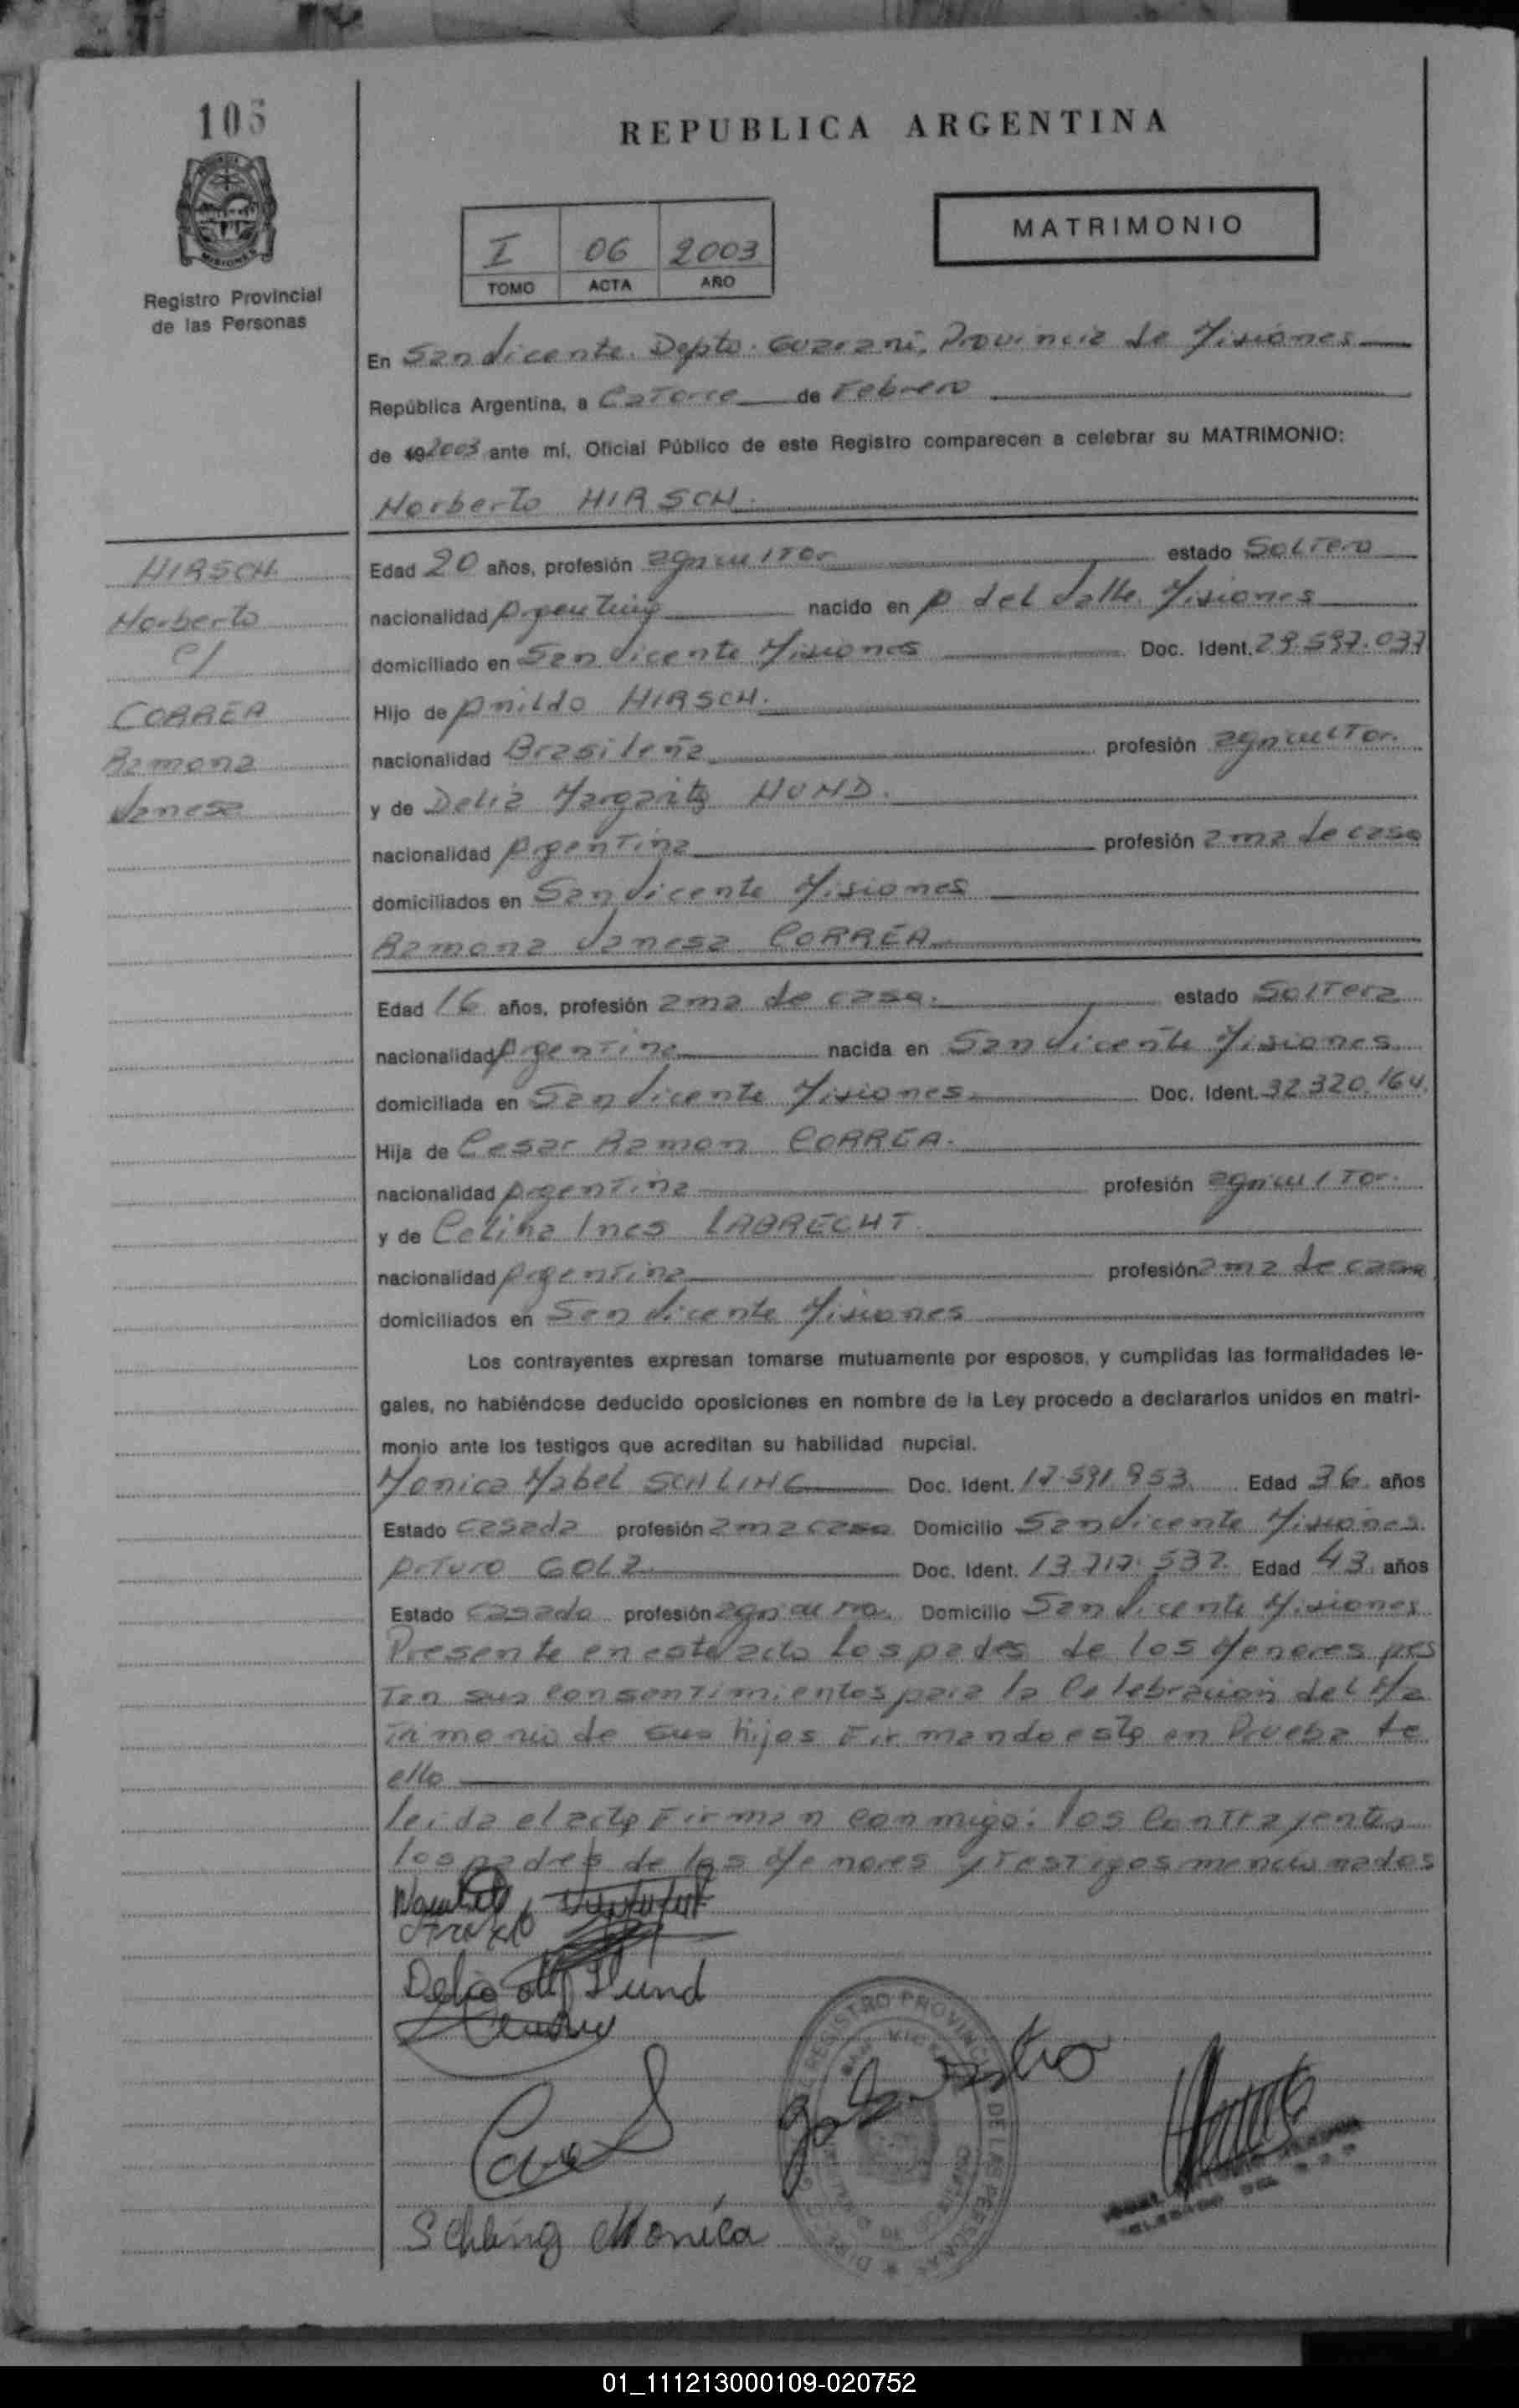 105
REPUBLICA ARGENTINA
MATRIMONIO
I 06 2003
TOMO ACTA AÑO
MISIONES
Registro Provincial
de las Personas
En San Vicente. Depto. Guarani, Provincia de Misiones
República Argentina, a Catorce de Febrero
de 192003 ante mí, Oficial Público de este Registro comparecen a celebrar su MATRIMONIO:
Norberto HIRSCH.
HIRSCH
Norberto
c/
CORREA
Ramona
Vanesa
Edad 20 años, profesión agricultor estado Soltero
nacionalidad Argentina nacido en A del Valle Misiones
domiciliado en San Vicente Misiones Doc. Ident. 29.597.037
Hijo de Anildo HIRSCH.
nacionalidad Brasileña profesión agricultor.
y de Delia Margarita HUND.
nacionalidad Argentina profesión ama de casa
domiciliados en San Vicente Misiones
Ramona Vanesa CORREA
Edad 16 años, profesión ama de casa. estado Soltera
nacionalidad Argentina nacida en San Vicente Misiones
domiciliada en San Vicente Misiones. Doc. Ident. 32.320.164.
Hija de Cesar Ramon CORREA.
nacionalidad Argentina profesión agricultor.
y de Celina Ines LABRECHT
nacionalidad Argentina profesión ama de casa
domiciliados en San Vicente Misiones
Los contrayentes expresan tomarse mutuamente por esposos, y cumplidas las formalidades le-
gales, no habiéndose deducido oposiciones en nombre de la Ley procedo a declararlos unidos en matri-
monio ante los testigos que acreditan su habilidad nupcial.
Monica Mabel SCHLING Doc. Ident. 17.591.953. Edad 36 años
Estado Casada profesión ama casa Domicilio San Vicente Misiones.
Arturo GOLZ Doc. Ident. 13.717.537. Edad 43 años
Estado Casado profesión Domicilio San Vicente Misiones
Presente en este acto los pades de los Menores pres
Tan sus Consentimientos para la Celebracion del Ma
trimonio de sus hijos Firmando esta en Prueba de
ello
leida el acta Firman conmigo: los Contrayentes
los padres de los Menores y Testigos mencionados
Delia M Hund
Schling Monica
REGISTRO PROVINCIAL DE LAS PERSONAS
01_111213000109-020752